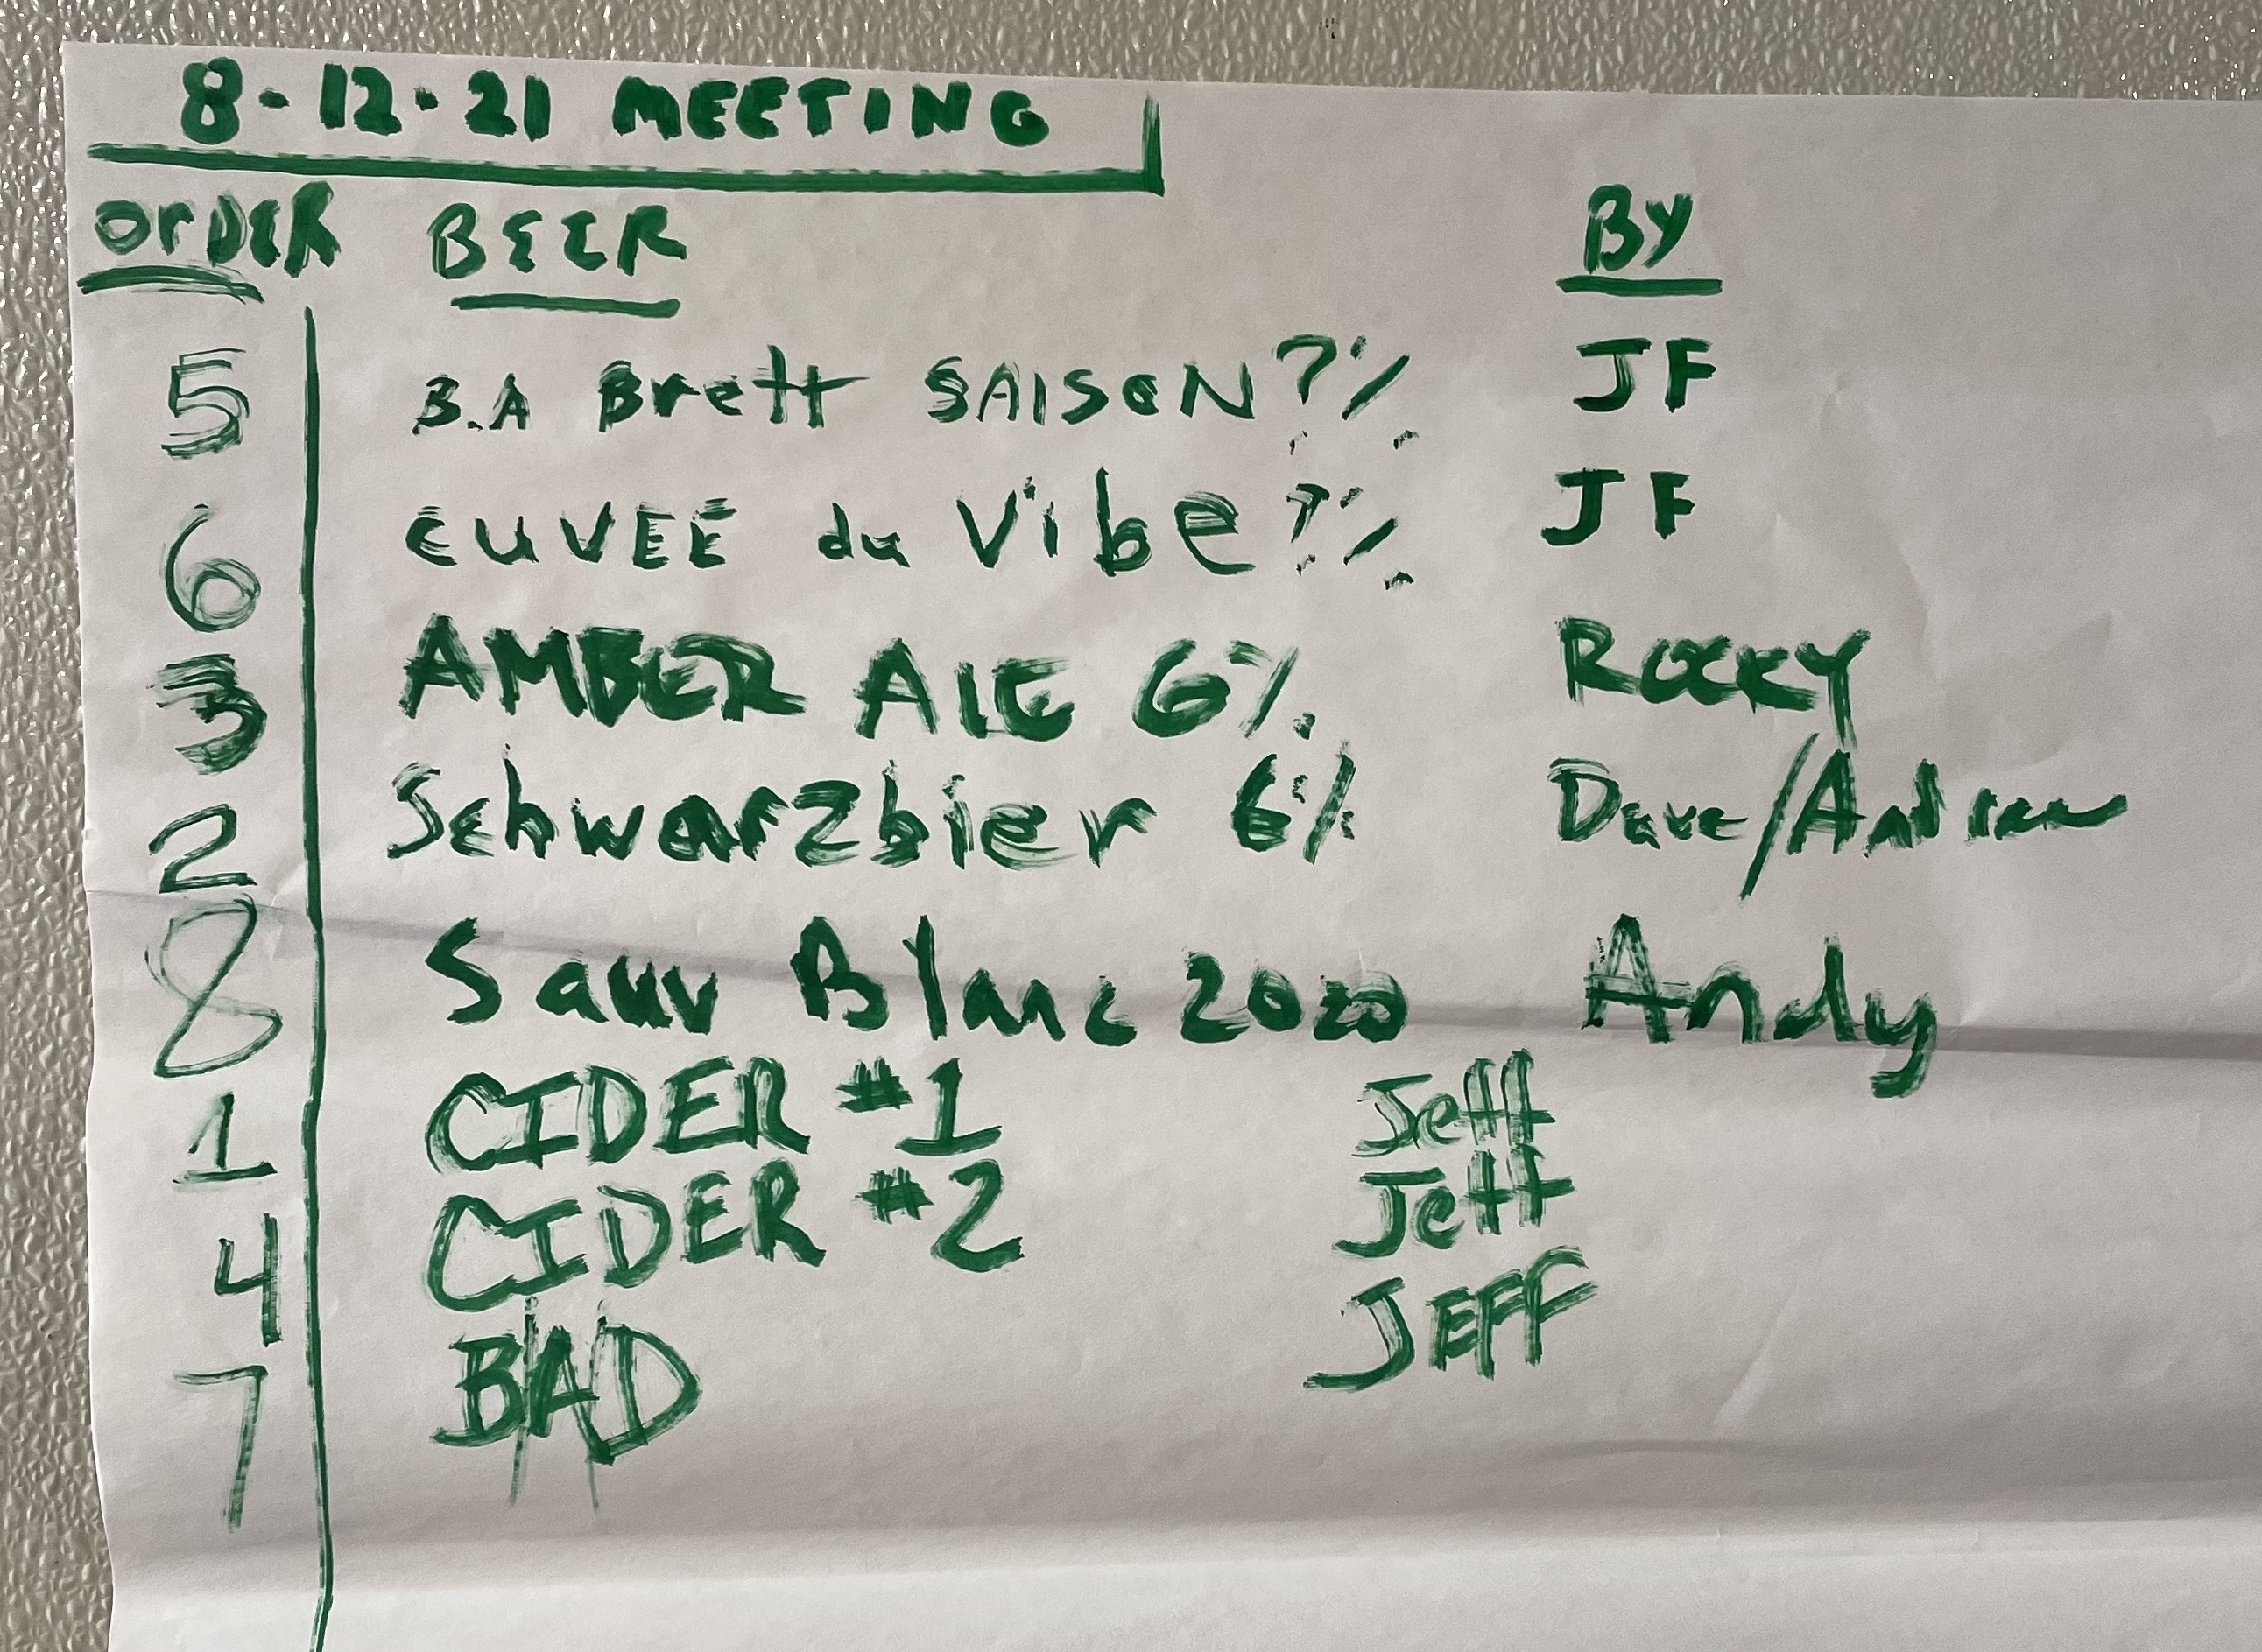 8-12-21 MEETING
OrDER BEER BY
5 B.A Brett SAISON ?% JF
6 CUVEE du Vibe ?% JF
3 AMBER ALE 6% ROCKY
2 Schwarzbier 6% Dave/Andrew
8 Sauv Blanc 2020 Andy
1 CIDER #1 Jeff
4 CIDER #2 Jeff
7 B|A|D JEFF